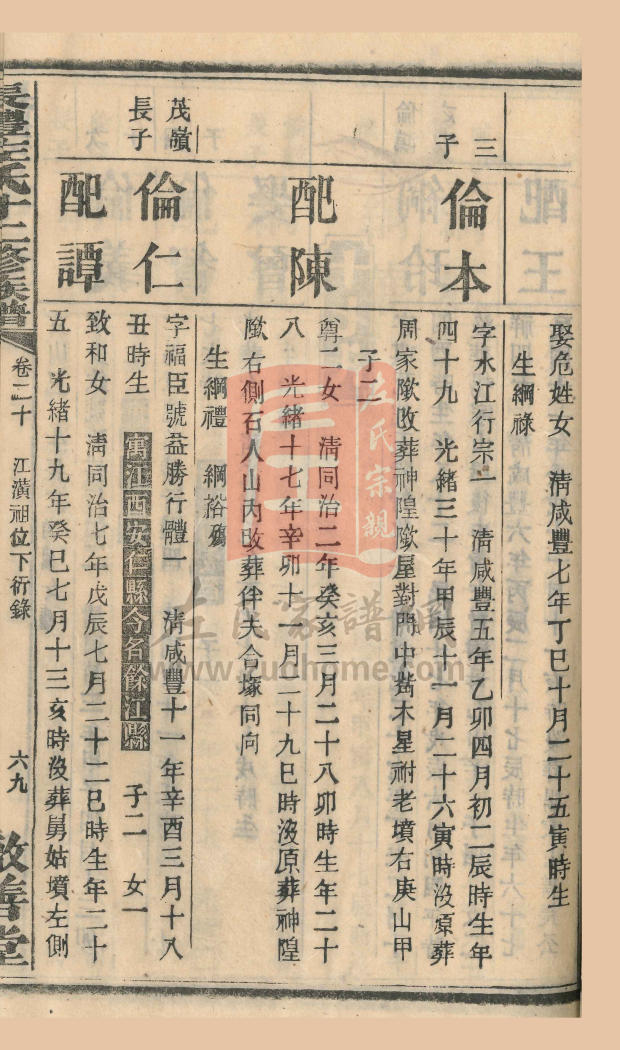 娶危姓女　清咸豐七年丁巳十月二十五寅時生
生綱祿
三子
倫本
字水江行宗一　清咸豐五年乙卯四月初二辰時生年
四十九　光緒三十年甲辰十一月二十六寅時沒原葬
周家歟改葬神隍歟屋對門中嵩木星祔老墳右庚山甲
子二
配陳
尊二女　清同治二年癸亥三月二十八卯時生年二十
八　光緒十七年辛卯十一月二十九巳時沒原葬神隍
歟右側石人山內改葬伴夫合塚同向
生綱禮　綱裕殤
茂嶺長子
倫仁
字福臣號益勝行體一　清咸豐十一年辛酉三月十八
丑時生　寓江西安仁縣今名餘江縣　子二　女一
配譚
致和女　清同治七年戊辰七月二十二巳時生年二十
五　光緒十九年癸巳七月十三亥時沒葬舅姑墳左側
左氏十二修族譜　卷二十　江濆祖位下衍錄　六九　敦善堂
左氏宗親
左氏家譜網
www.zuohome.com